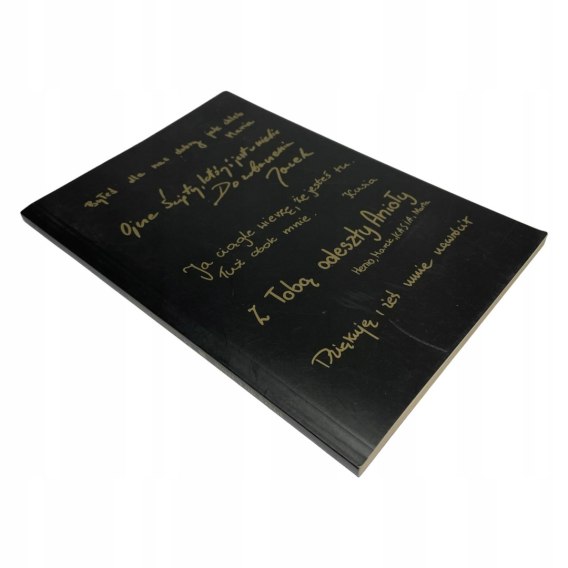 Byłeś dla nas dobry jak chleb
Maria
Ojcze Święty, który jesteś w niebie
Do zobaczenia
Jacek
Ja ciągle wierzę, że jesteś tu.
Tuż obok mnie.
Kuba
Z Tobą odeszły Anioły
Henio, Marek, KASIA, Marta
Dziękuję, żeś mnie nawrócił